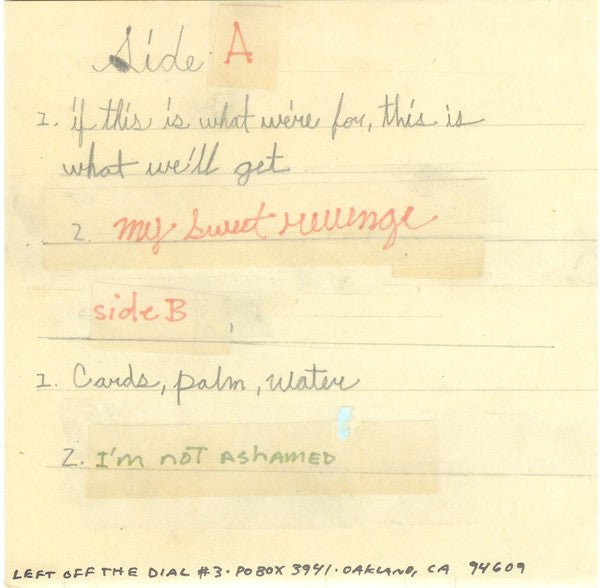 Side A
1. if this is what we're for, this is
what we'll get
2. my sweet revenge
side B
1. Cards, palm, water
2. I'm not ashamed
LEFT OFF THE DIAL #3 · PO BOX 3941 · OAKLAND, CA 94609